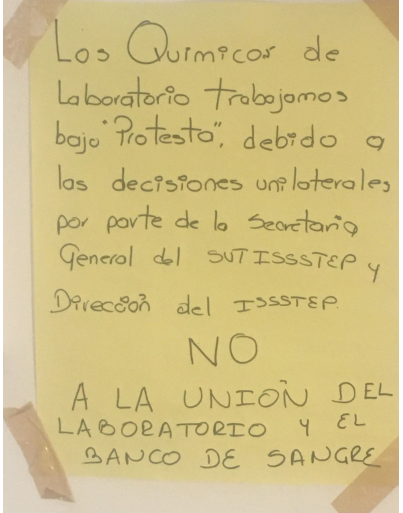 Los Químicos de
Laboratorio trabajamos
bajo "Protesta", debido a
las decisiones unilaterales
por parte de la Secretaria
General del SUTISSSTEP y
Dirección del ISSSTEP.
NO
A LA UNIÓN DEL
LABORATORIO Y EL
BANCO DE SANGRE